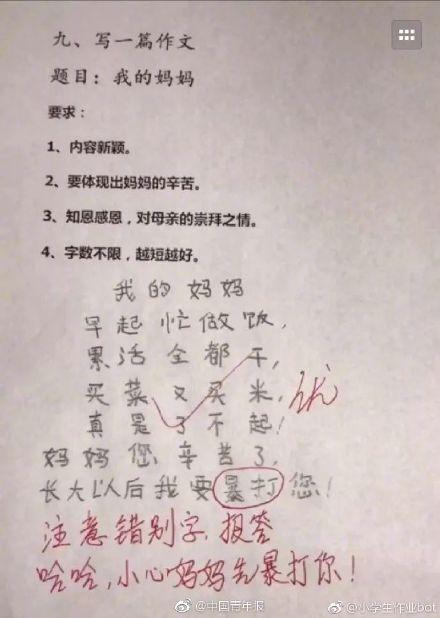 九、写一篇作文
题目：我的妈妈
要求：
1、内容新颖。
2、要体现出妈妈的辛苦。
3、知恩感恩，对母亲的崇拜之情。
4、字数不限，越短越好。
我的妈妈
早起忙做饭，
累活全都干，
买菜又买米，优
真是了不起！
妈妈您辛苦了，
长大以后我要暴打您！
注意错别字，报答
哈哈，小心妈妈先暴打你！
@中国青年报 @小学生作业bot